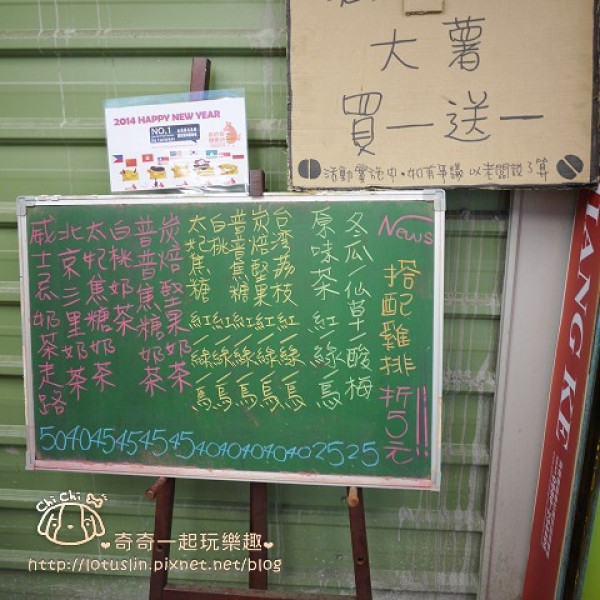 大薯
買一送一
活動實施中·如有爭議 以老闆說了算
2014 HAPPY NEW YEAR
NO.1
News
搭配雞排折5元!!
冬瓜/仙草/酸梅 25
原味茶 紅 綠 烏 25
台湾荔枝 紅/綠/烏 40
炭焙堅果 紅/綠/烏 40
普普蕉糖 紅/綠/烏 40
白桃 紅/綠/烏 40
太妃蕉糖 紅/綠/烏 40
炭焙堅果奶茶 45
普普蕉糖奶茶 45
白桃奶茶 45
太妃蕉糖奶茶 45
北京三里奶茶 40
威士忌奶茶走路 50
IANG KE
Chi Chi
奇奇一起玩樂趣
http://lotuslin.pixnet.net/blog